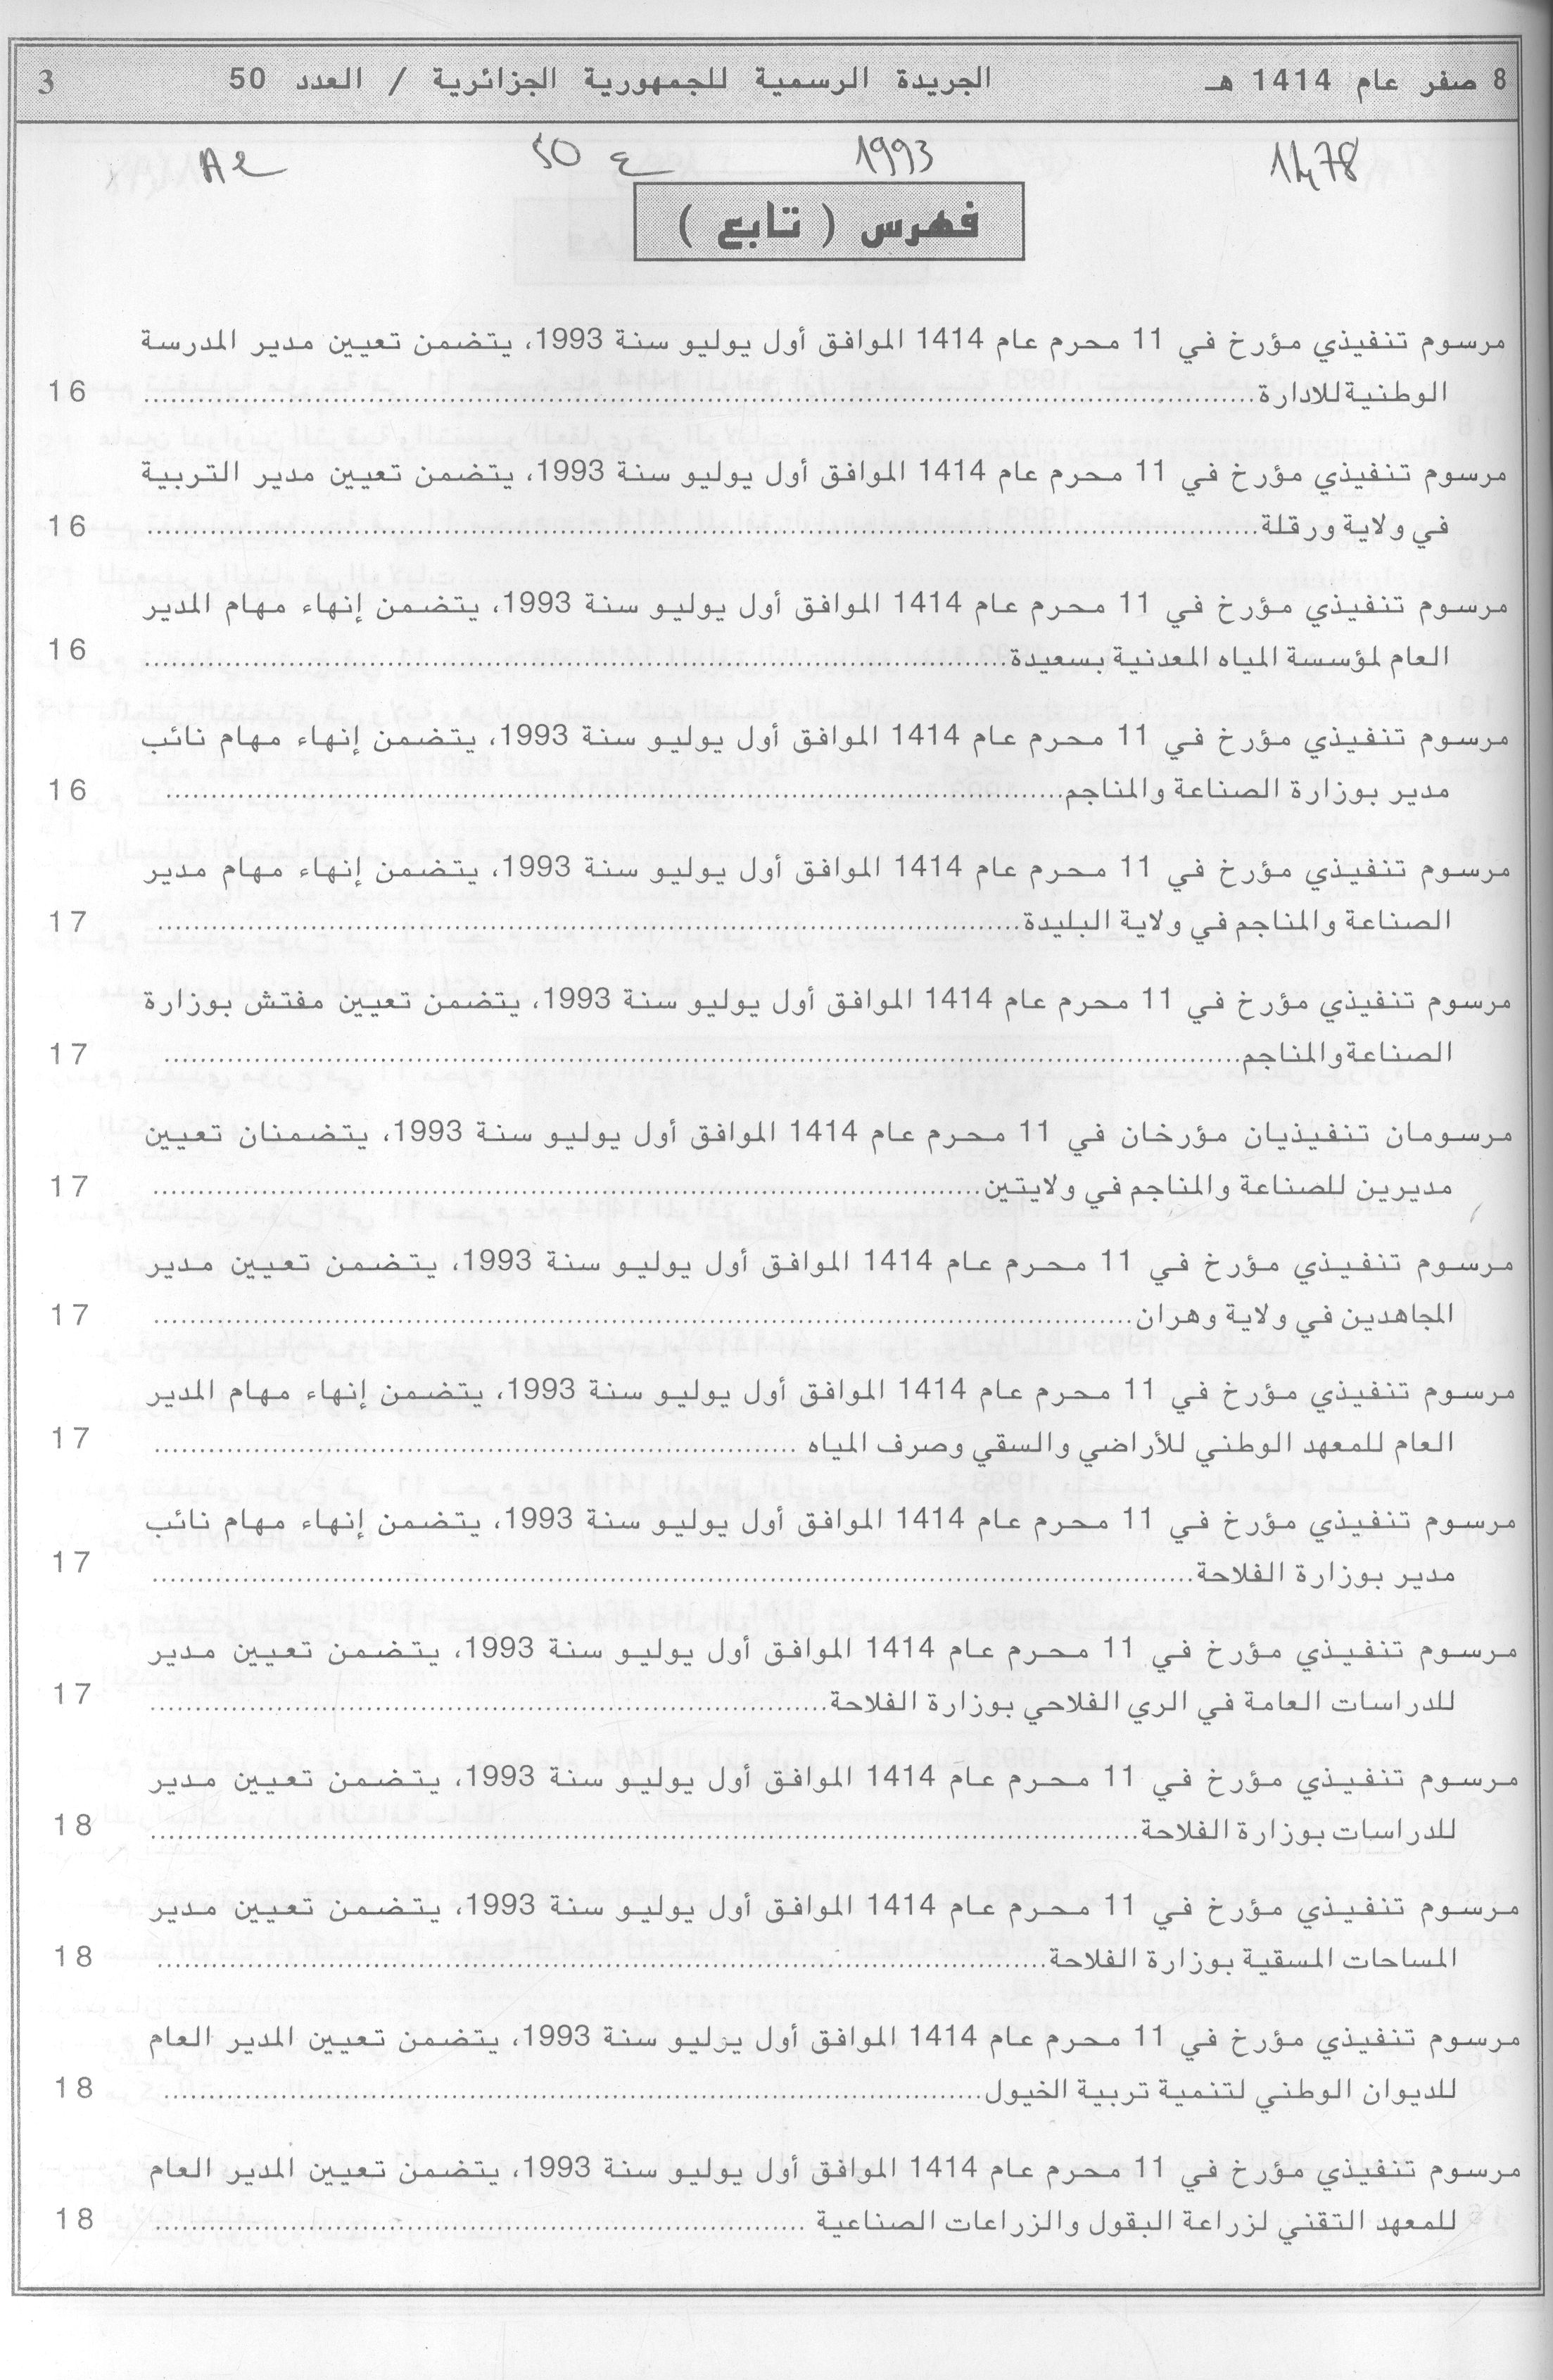 8 صفر عام 1414 هـ الجريدة الرسمية للجمهورية الجزائرية / العدد 50 3
1478 1993 ع 50 Ae
فهرس ( تابع )
مرسوم تنفيذي مؤرخ في 11 محرم عام 1414 الموافق أول يوليو سنة 1993، يتضمن تعيين مدير المدرسة
الوطنية للادارة 16
مرسوم تنفيذي مؤرخ في 11 محرم عام 1414 الموافق أول يوليو سنة 1993، يتضمن تعيين مدير التربية
في ولاية ورقلة 16
مرسوم تنفيذي مؤرخ في 11 محرم عام 1414 الموافق أول يوليو سنة 1993، يتضمن إنهاء مهام المدير
العام لمؤسسة المياه المعدنية بسعيدة 16
مرسوم تنفيذي مؤرخ في 11 محرم عام 1414 الموافق أول يوليو سنة 1993، يتضمن إنهاء مهام نائب
مدير بوزارة الصناعة والمناجم 16
مرسوم تنفيذي مؤرخ في 11 محرم عام 1414 الموافق أول يوليو سنة 1993، يتضمن إنهاء مهام مدير
الصناعة والمناجم في ولاية البليدة 17
مرسوم تنفيذي مؤرخ في 11 محرم عام 1414 الموافق أول يوليو سنة 1993، يتضمن تعيين مفتش بوزارة
الصناعة والمناجم 17
مرسومان تنفيذيان مؤرخان في 11 محرم عام 1414 الموافق أول يوليو سنة 1993، يتضمنان تعيين
مديرين للصناعة والمناجم في ولايتين 17
مرسوم تنفيذي مؤرخ في 11 محرم عام 1414 الموافق أول يوليو سنة 1993، يتضمن تعيين مدير
المجاهدين في ولاية وهران 17
مرسوم تنفيذي مؤرخ في 11 محرم عام 1414 الموافق أول يوليو سنة 1993، يتضمن إنهاء مهام المدير
العام للمعهد الوطني للأراضي والسقي وصرف المياه 17
مرسوم تنفيذي مؤرخ في 11 محرم عام 1414 الموافق أول يوليو سنة 1993، يتضمن إنهاء مهام نائب
مدير بوزارة الفلاحة 17
مرسوم تنفيذي مؤرخ في 11 محرم عام 1414 الموافق أول يوليو سنة 1993، يتضمن تعيين مدير
للدراسات العامة في الري الفلاحي بوزارة الفلاحة 17
مرسوم تنفيذي مؤرخ في 11 محرم عام 1414 الموافق أول يوليو سنة 1993، يتضمن تعيين مدير
للدراسات بوزارة الفلاحة 18
مرسوم تنفيذي مؤرخ في 11 محرم عام 1414 الموافق أول يوليو سنة 1993، يتضمن تعيين مدير
المساحات المسقية بوزارة الفلاحة 18
مرسوم تنفيذي مؤرخ في 11 محرم عام 1414 الموافق أول يوليو سنة 1993، يتضمن تعيين المدير العام
للديوان الوطني لتنمية تربية الخيول 18
مرسوم تنفيذي مؤرخ في 11 محرم عام 1414 الموافق أول يوليو سنة 1993، يتضمن تعيين المدير العام
للمعهد التقني لزراعة البقول والزراعات الصناعية 18